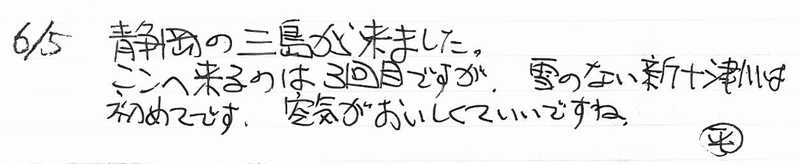 6/5 静岡の三島から来ました。
ここへ来るのは3回目ですが、雪のない新十津川は
初めてです。空気がおいしくていいですね。